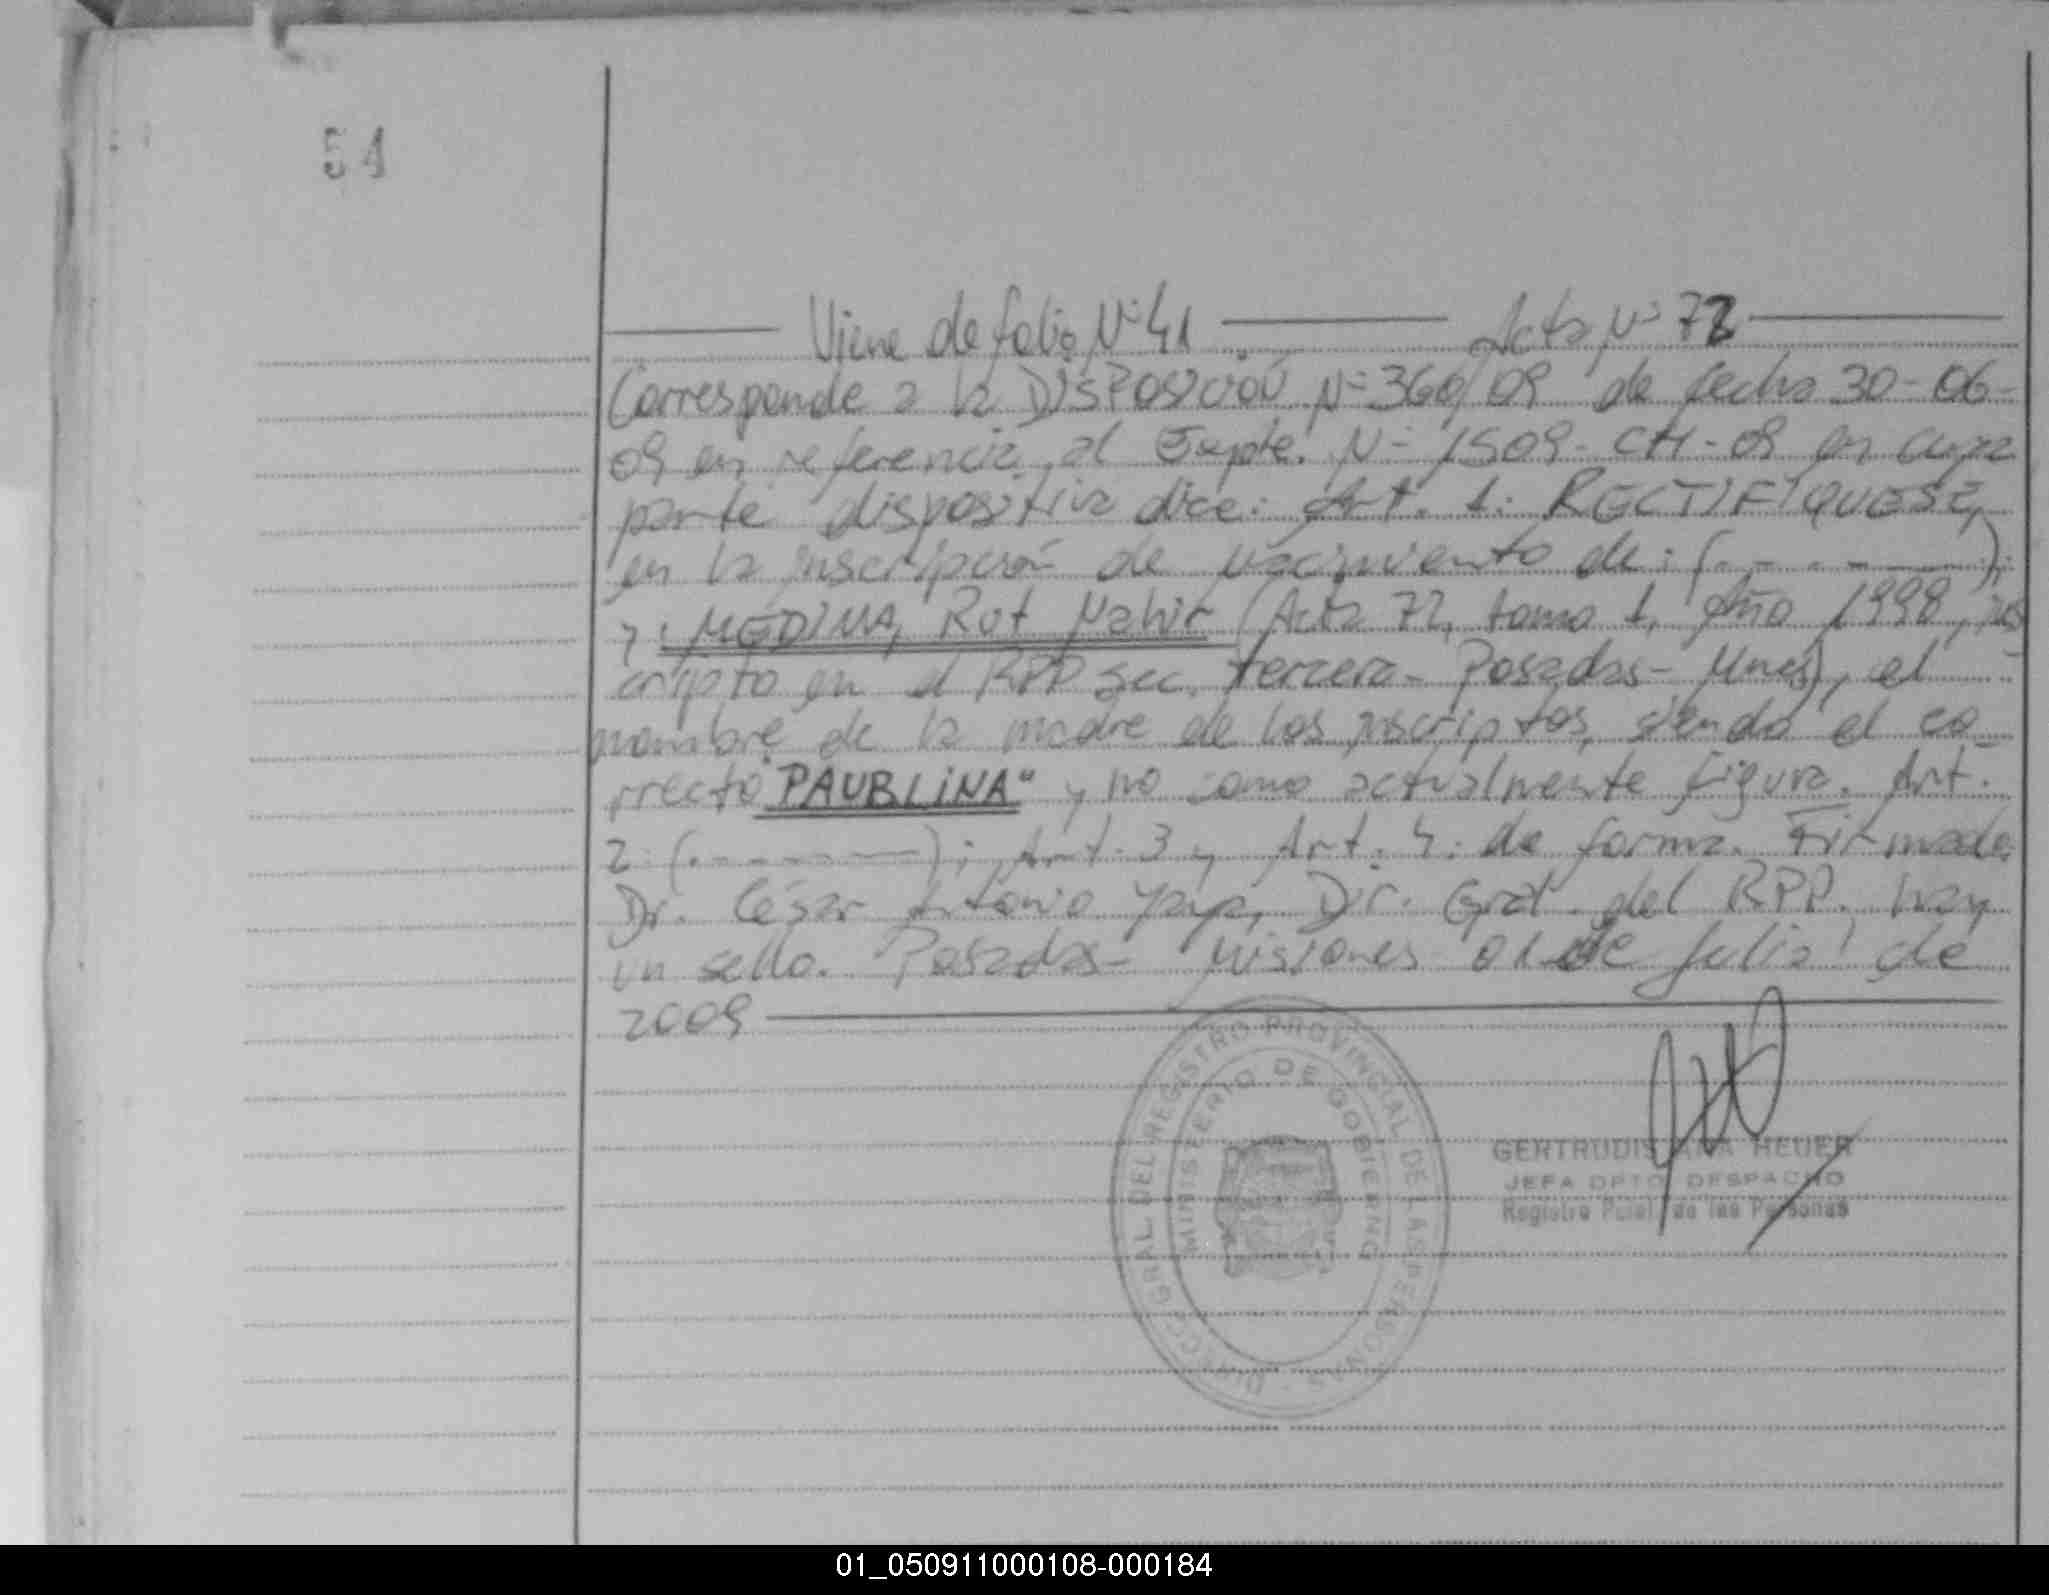 51
Viene de folio Nº 41 Acta Nº 72
Corresponde a la DISPOSICIÓN Nº 360/09 de fecha 30-06-
09 en referencia al Expte. Nº 1509-CH-09 en cuya
parte dispositiva dice: Art. 1: RECTIFIQUESE,
en la inscripción de nacimiento de: (. - - . - ——);
y: MEDINA, Rut Nahir (Acta 72, tomo 1, Año 1998, ins
cripto en el RPP sec. tercera- Posadas- Mnes), el
nombre de la madre de los inscriptos, siendo el co_
rrecto "PAUBLINA" y no como actualmente figura. Art.
2: (. - - - - ——); Art. 3 y Art. 4: de forma. Firmado
Dr. César Antonio Yaya, Dir. Gral. del RPP. hay
un sello. Posadas- Misiones 01 de Julio de
2009
DIRECC. GRAL. DEL REGISTRO PROVINCIAL DE LAS PERSONAS
MINISTERIO DE GOBIERNO
GERTRUDIS ANA HEUER
JEFA DPTO. DESPACHO
Registro Pcial. de las Personas
01_050911000108-000184